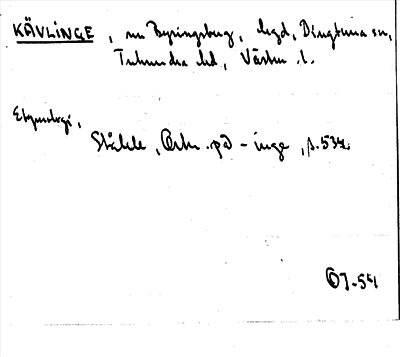 KÄVLINGE, nu Byringsbug, lhgd, Dingtuna sn,
Tuhundra hd, Västm. l.
Etymologi,
Ståhle, Ortn. på -inge, s. 534
ÖJ-54